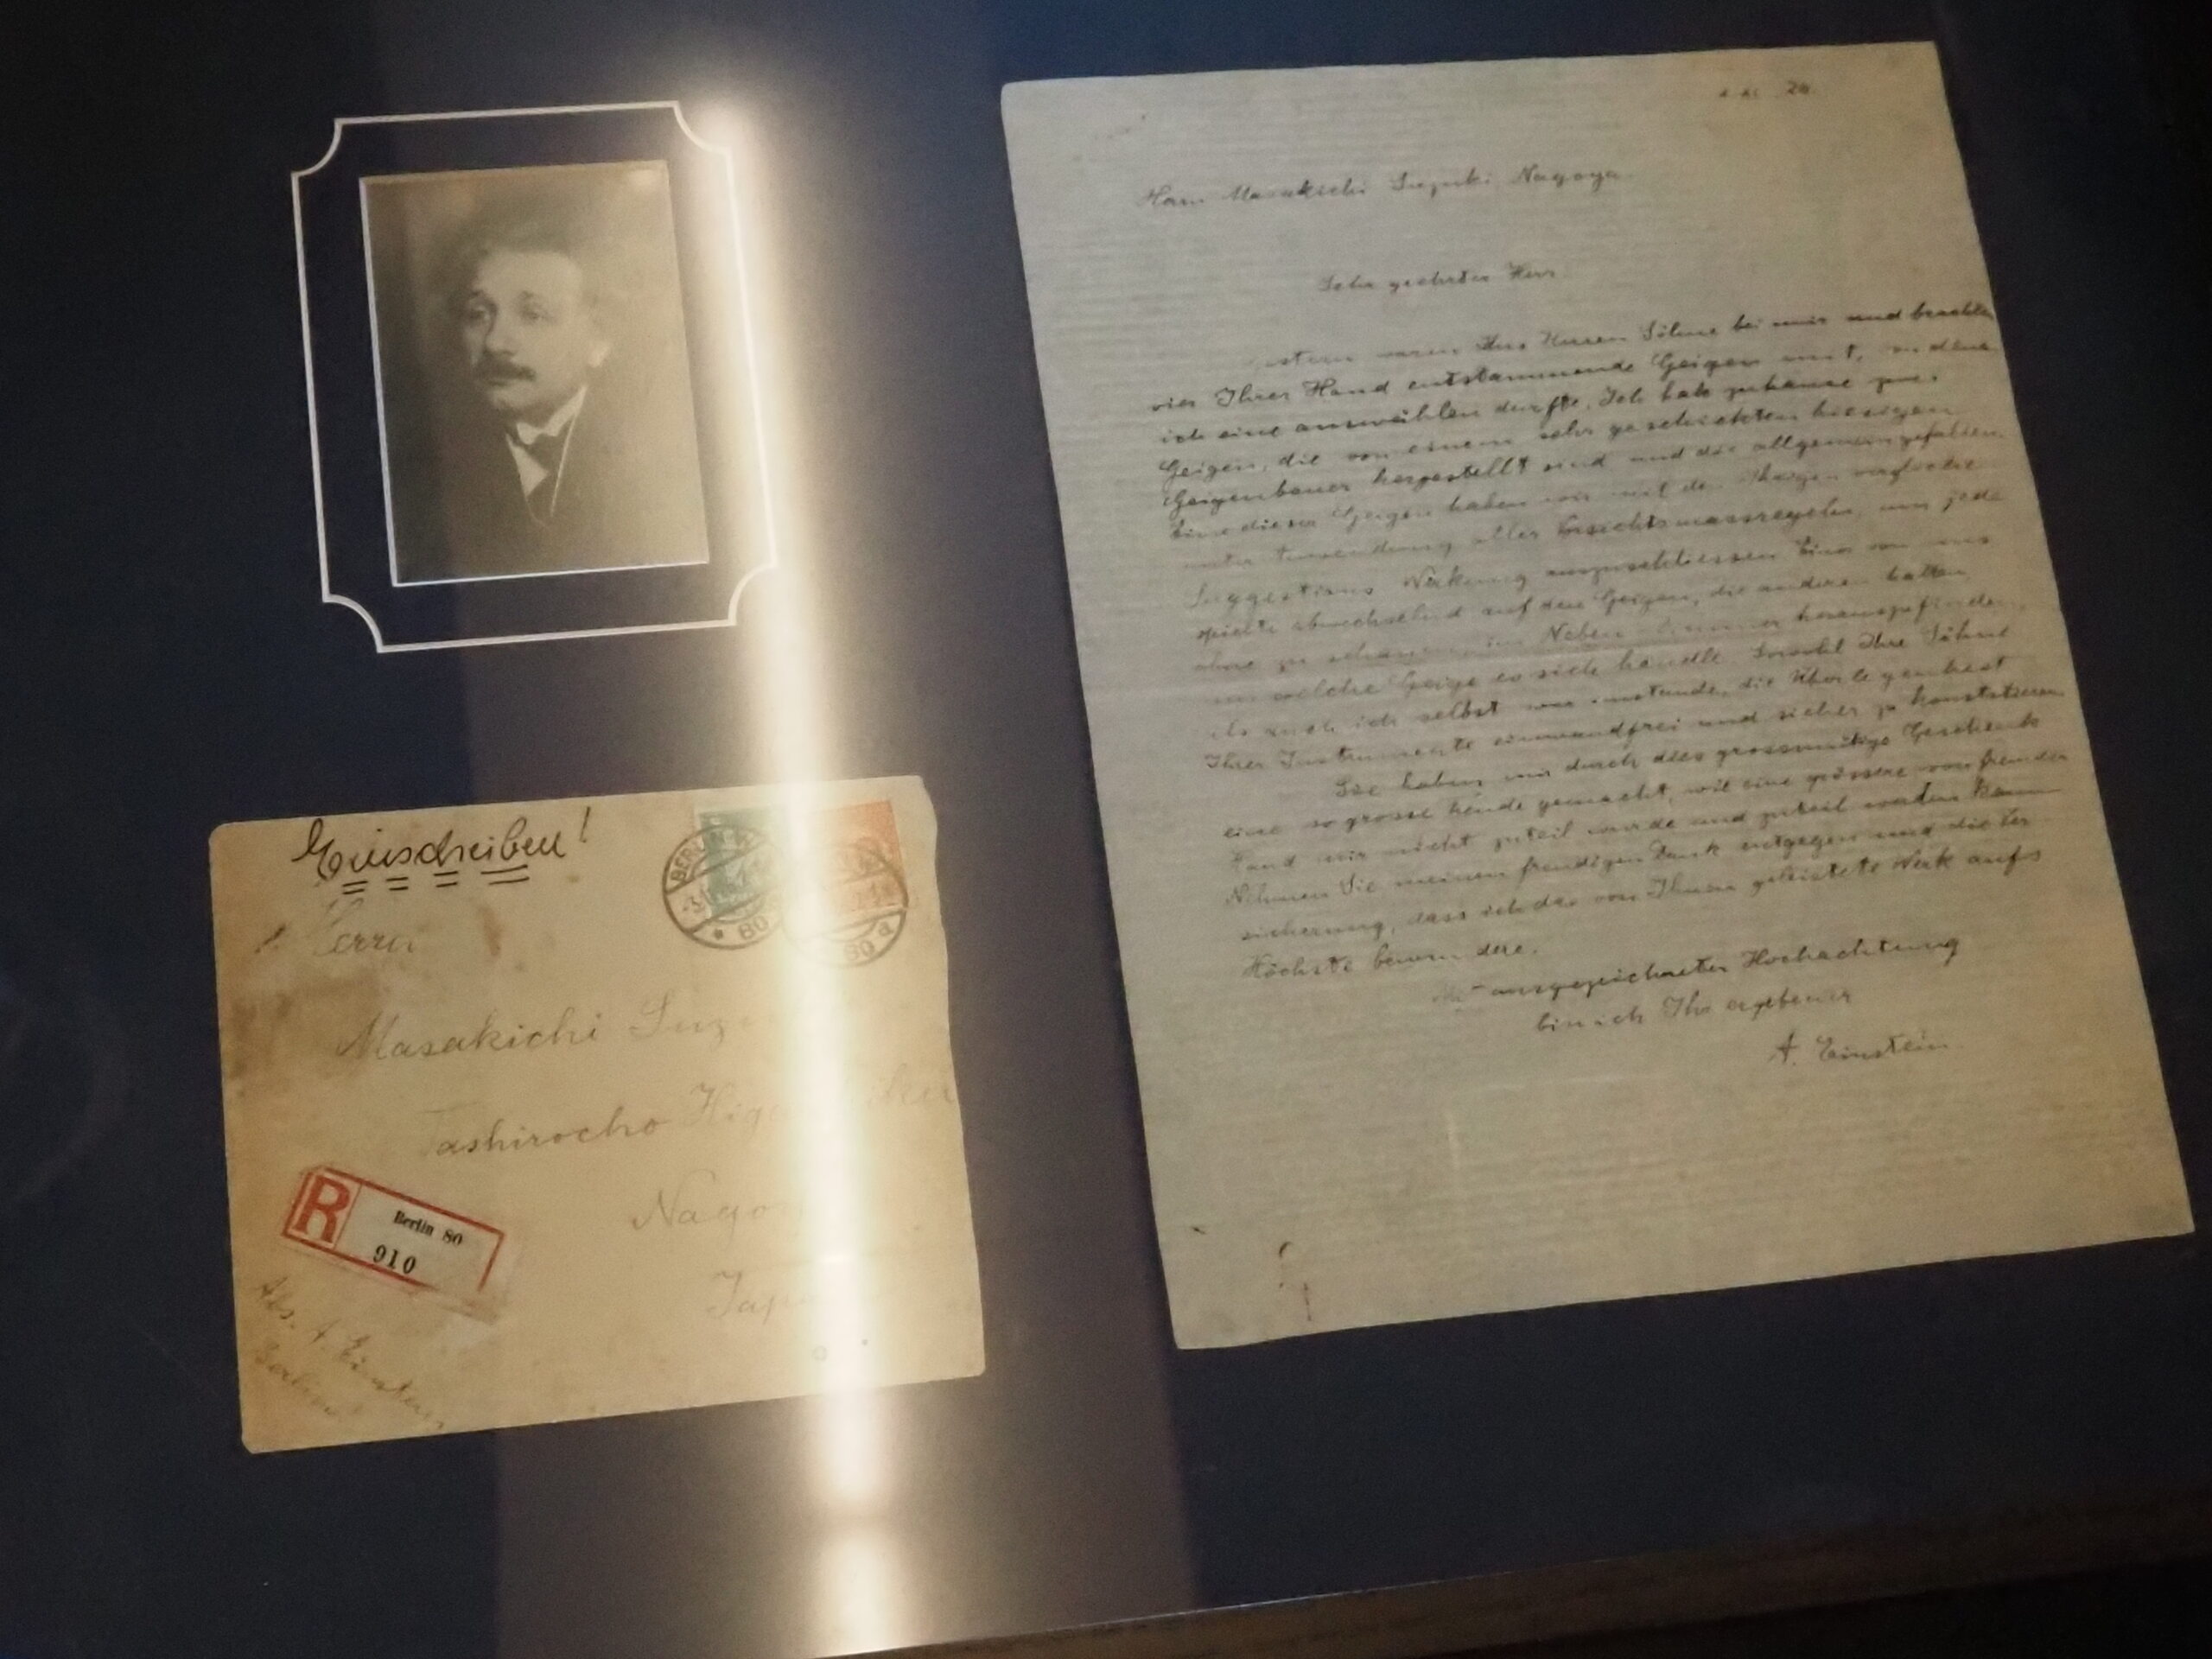 Einschreiben!
Herrn
Masakichi
Tashirocho
R
Berlin 80
910
Abs. A. Einstein
Berlin
BERLIN
80
80 a
24
Herrn Masakichi Suzuki Nagoya
Sehr geehrter Herr
waren Ihre Herren Söhne bei mir und brachten
vier Ihrer Hand entstammende Geigen mit, von denen
ich eine auswählen durfte. Ich habe zuhause zwei
Geigen, die von einem sehr geschickten hiesigen
Geigenbauer hergestellt sind und die allgemein gefallen.
Eine dieser Geigen haben wir mit der Ihrigen verglichen
unter Anwendung aller Vorsichtsmassregeln, um jede
Suggestions Wirkung auszuschliessen. Einer von uns
spielte abwechselnd auf den Geigen, die anderen hatten
ohne zu schauen im Neben Zimmer herauszufinden,
um welche Geige es sich handle. Sowohl Ihre Söhne
als auch ich selbst war imstande, die Überlegenheit
Ihrer Instrumente einwandfrei und sicher zu konstatieren
Sie haben mir durch dies grossmütige Geschenk
eine so grosse Freude gemacht, wie eine grössere von fremder
Hand mir nicht zuteil wurde und zuteil werden kann
Nehmen Sie meinen freudigen Dank entgegen und die Ver
sicherung, dass ich das von Ihnen geleistete Werk aufs
Höchste bewundere.
Mit ausgezeichneter Hochachtung
bin ich Ihr ergebener
A. Einstein.